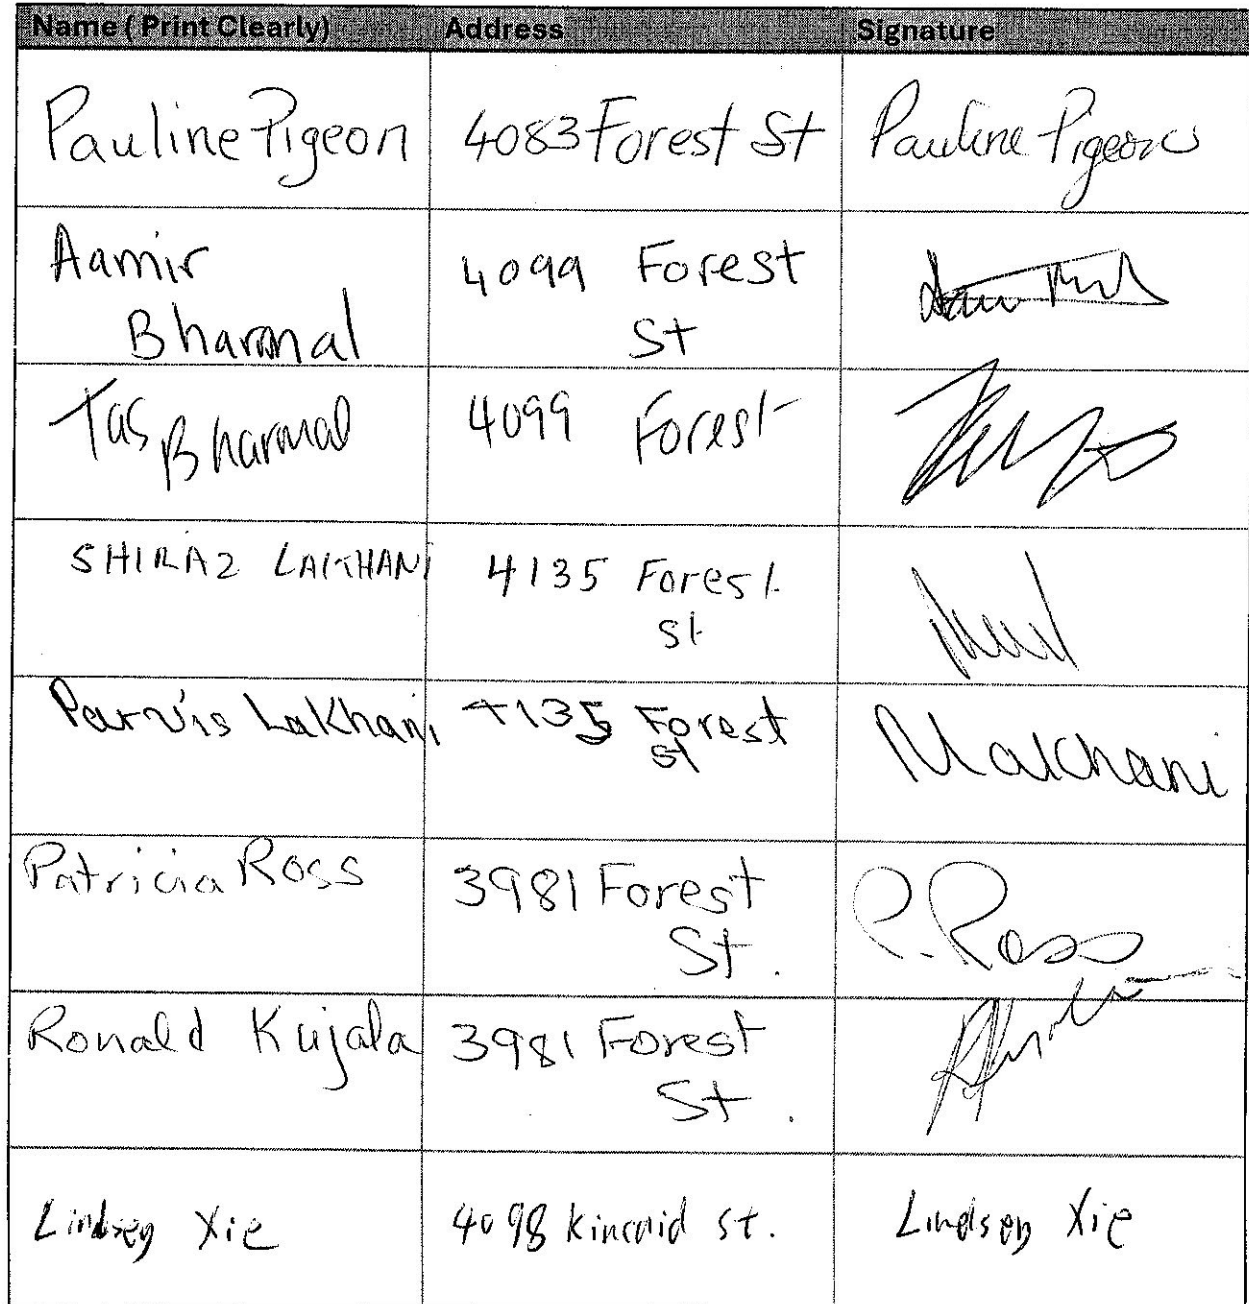 Name ( Print Clearly) Address Signature
Pauline Pigeon 4083 Forest St Pauline Pigeon
Aamir 4099 Forest
Bharmal St
Tas Bharmal 4099 Forest
SHIRAZ LAKHANI 4135 Forest
st
Parvis Lakhani 4135 Forest
st
Patricia Ross 3981 Forest P. Ross
St.
Ronald Kujala 3981 Forest
St.
Lindsey Xie 4098 Kincaid st. Lindsey Xie